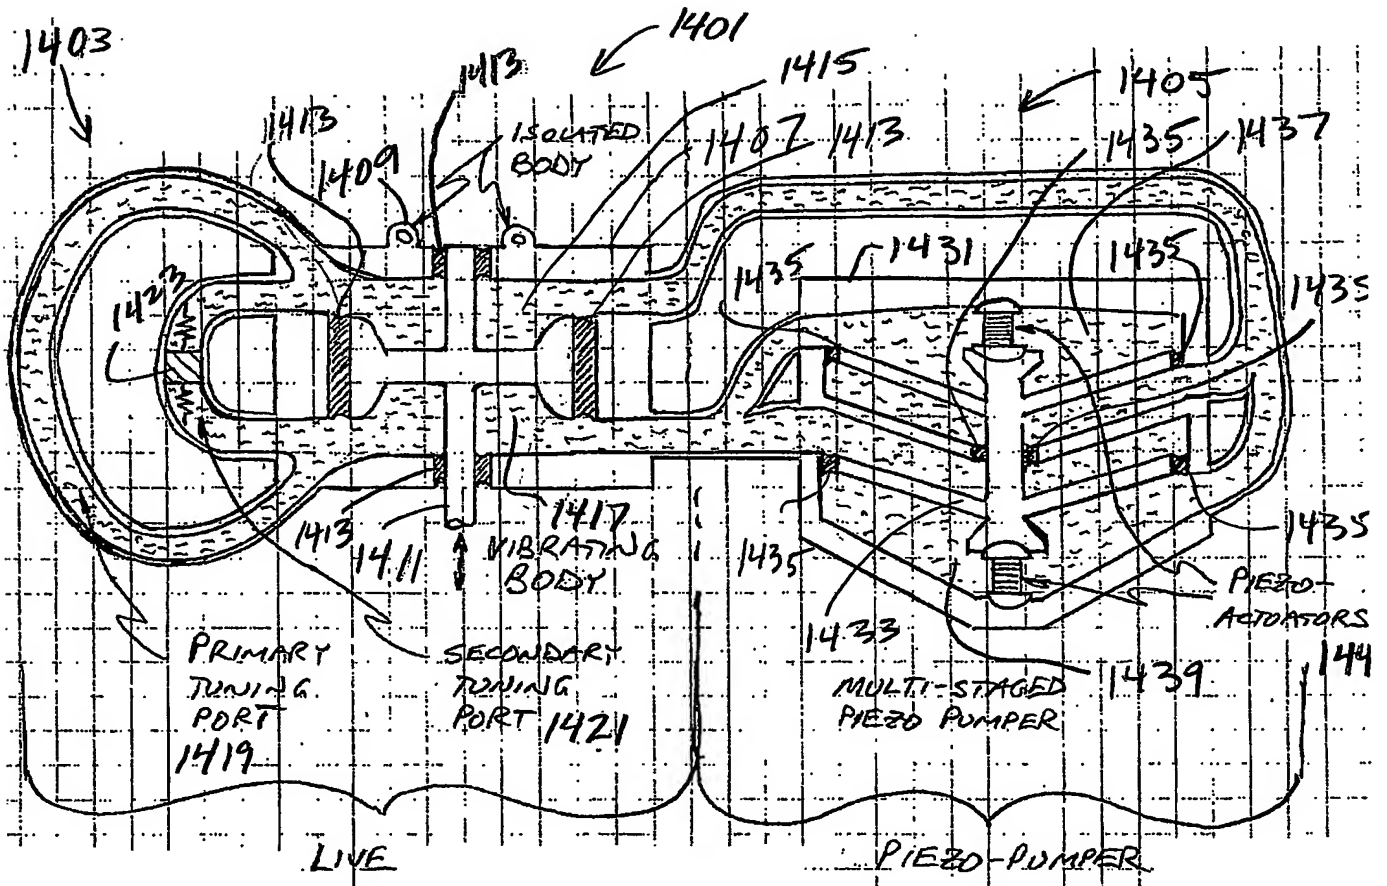 1401
1403
1413
1415
1405
1413
ISOLATED
BODY
1407
1413
1435
1437
1409
1435
1431
1435
1435
1423
1413
1411
1417
VIBRATING
BODY
1435
1433
1435
PIEZO-
ACTUATORS
PRIMARY
TUNING
PORT
1419
SECONDARY
TUNING
PORT 1421
MULTI-STAGED
PIEZO PUMPER
1439
144
LIVE
PIEZO-PUMPER